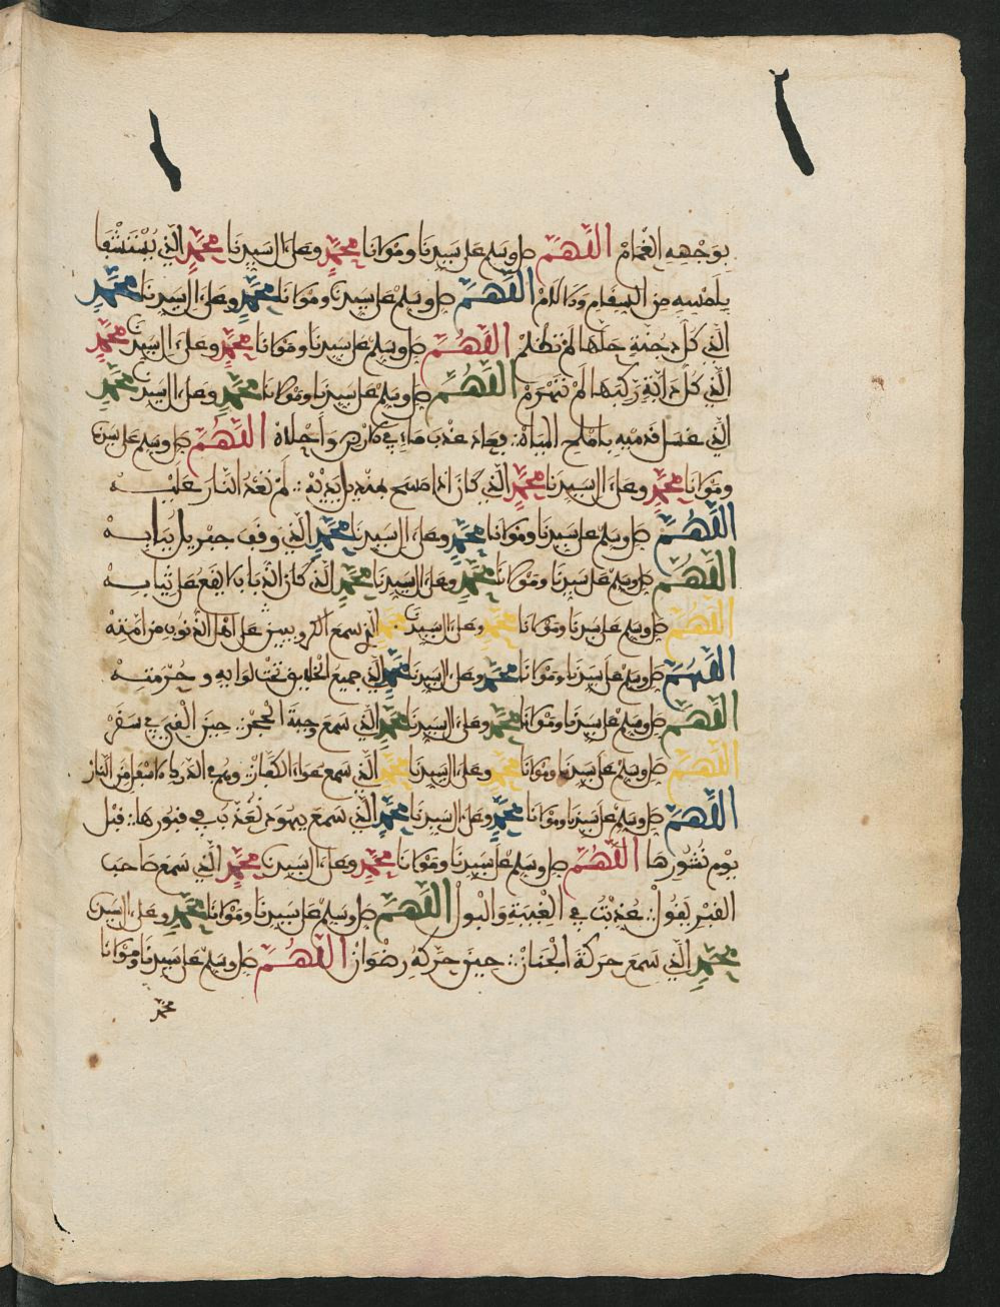 بوجهه الغمام اللهم صل وسلم على سيدنا ومولانا محمد وعلى ءال سيدنا محمد الذي يستشفا
بلمسه من السقام و اللهم صل وسلم على سيدنا ومولانا محمد وعلى ءال سيدنا محمد
الذي كل حلها لم تظلم اللهم صل وسلم على سيدنا ومولانا محمد وعلى ءال سيدنا محمد
الذي كل دابة ركبها لم تهرم اللهم صل وسلم على سيدنا ومولانا محمد وعلى ءال سيدنا محمد
الذي غسل قدميه باملح المياه فعاد عذب ماء في واحلاه اللهم صل وسلم على سيدنا
ومولانا محمد وعلى ءال سيدنا محمد الذي كان اذا مسح لم تعد النار عليه
اللهم صل وسلم على سيدنا ومولانا محمد وعلى ءال سيدنا محمد الذي وقف جبريل ببابه
اللهم صل وسلم على سيدنا ومولانا محمد وعلى ءال سيدنا محمد الذي كان الذباب لا يقع على ثيابه
اللهم صل وسلم على سيدنا ومولانا محمد وعلى ءال سيدنا محمد الذي سمع الكروبيين على اهل الذنوب من امته
اللهم صل وسلم على سيدنا ومولانا محمد وعلى ءال سيدنا محمد الذي جميع الخلايق تحت لوايه وحرمته
اللهم صل وسلم على سيدنا ومولانا محمد وعلى ءال سيدنا محمد الذي سمع وجبة الحجر حين القي في سقر
اللهم صل وسلم على سيدنا ومولانا محمد وعلى ءال سيدنا محمد الذي سمع عواء الكفار وهم في الدرك الاسفل من النار
اللهم صل وسلم على سيدنا ومولانا محمد وعلى ءال سيدنا محمد الذي سمع يهود تعذب في قبورها قبل
يوم نشورها اللهم صل وسلم على سيدنا ومولانا محمد وعلى ءال سيدنا محمد الذي سمع صاحب
القبر يقول عذبت في الغيبة والبول اللهم صل وسلم على سيدنا ومولانا محمد وعلى ءال سيدنا
محمد الذي سمع حركة الجنان حين حركه رضوان اللهم صل وسلم على سيدنا ومولانا
محمد